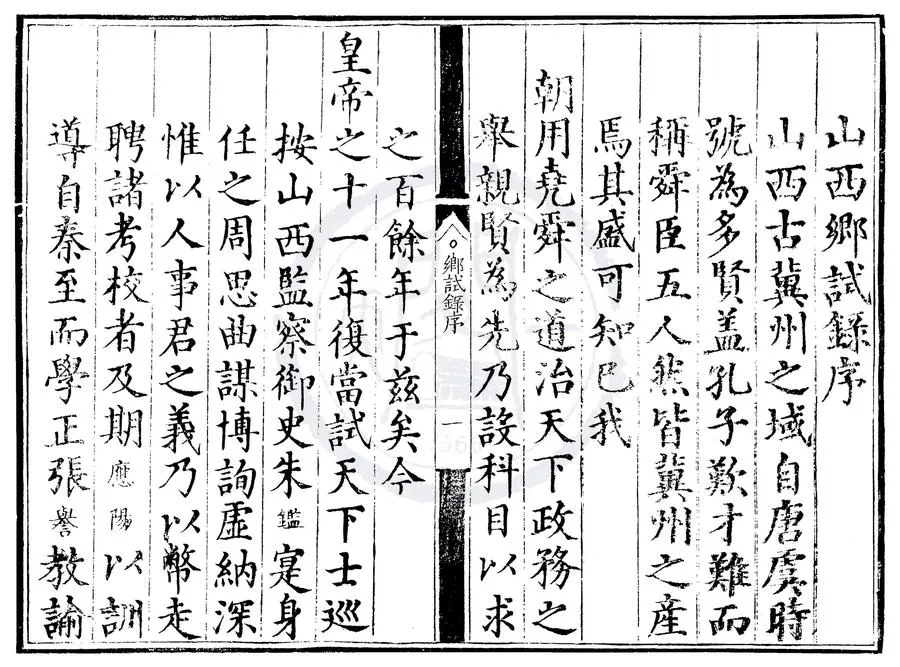 山西鄉試錄序
山西古冀州之域自唐虞時
號為多賢盖孔子歎才難而
稱舜臣五人然皆冀州之産
焉其盛可知已我
朝用堯舜之道治天下政務之
舉親賢為先乃設科目以求
鄉試錄序
一
之百餘年于茲矣今
皇帝之十一年復當試天下士巡
按山西監察御史朱鑑寔身
任之周思曲謀博詢虛納深
惟以人事君之義乃以幣走
聘諸考校者及期應陽以訓
導自秦至而學正張譽教諭